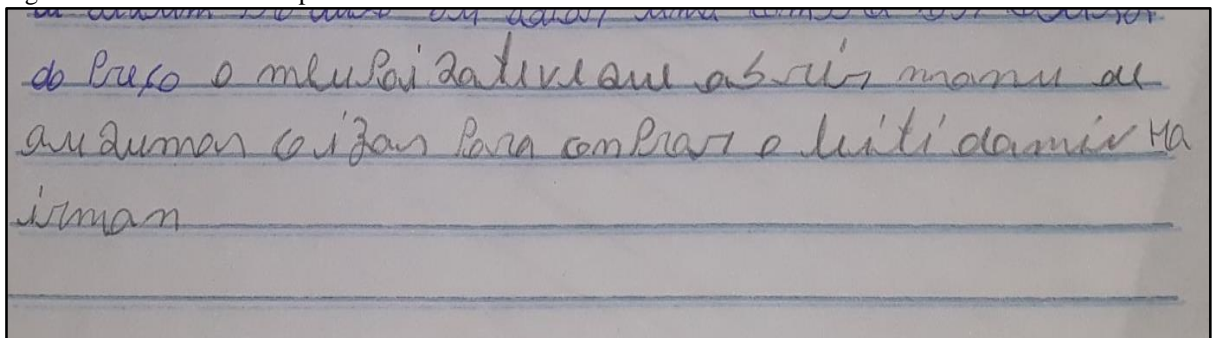 uma
do Preso o meu Pai zateve que ab rir manu de
auzuman coizan Para comPrar o leiti daminHa
irman